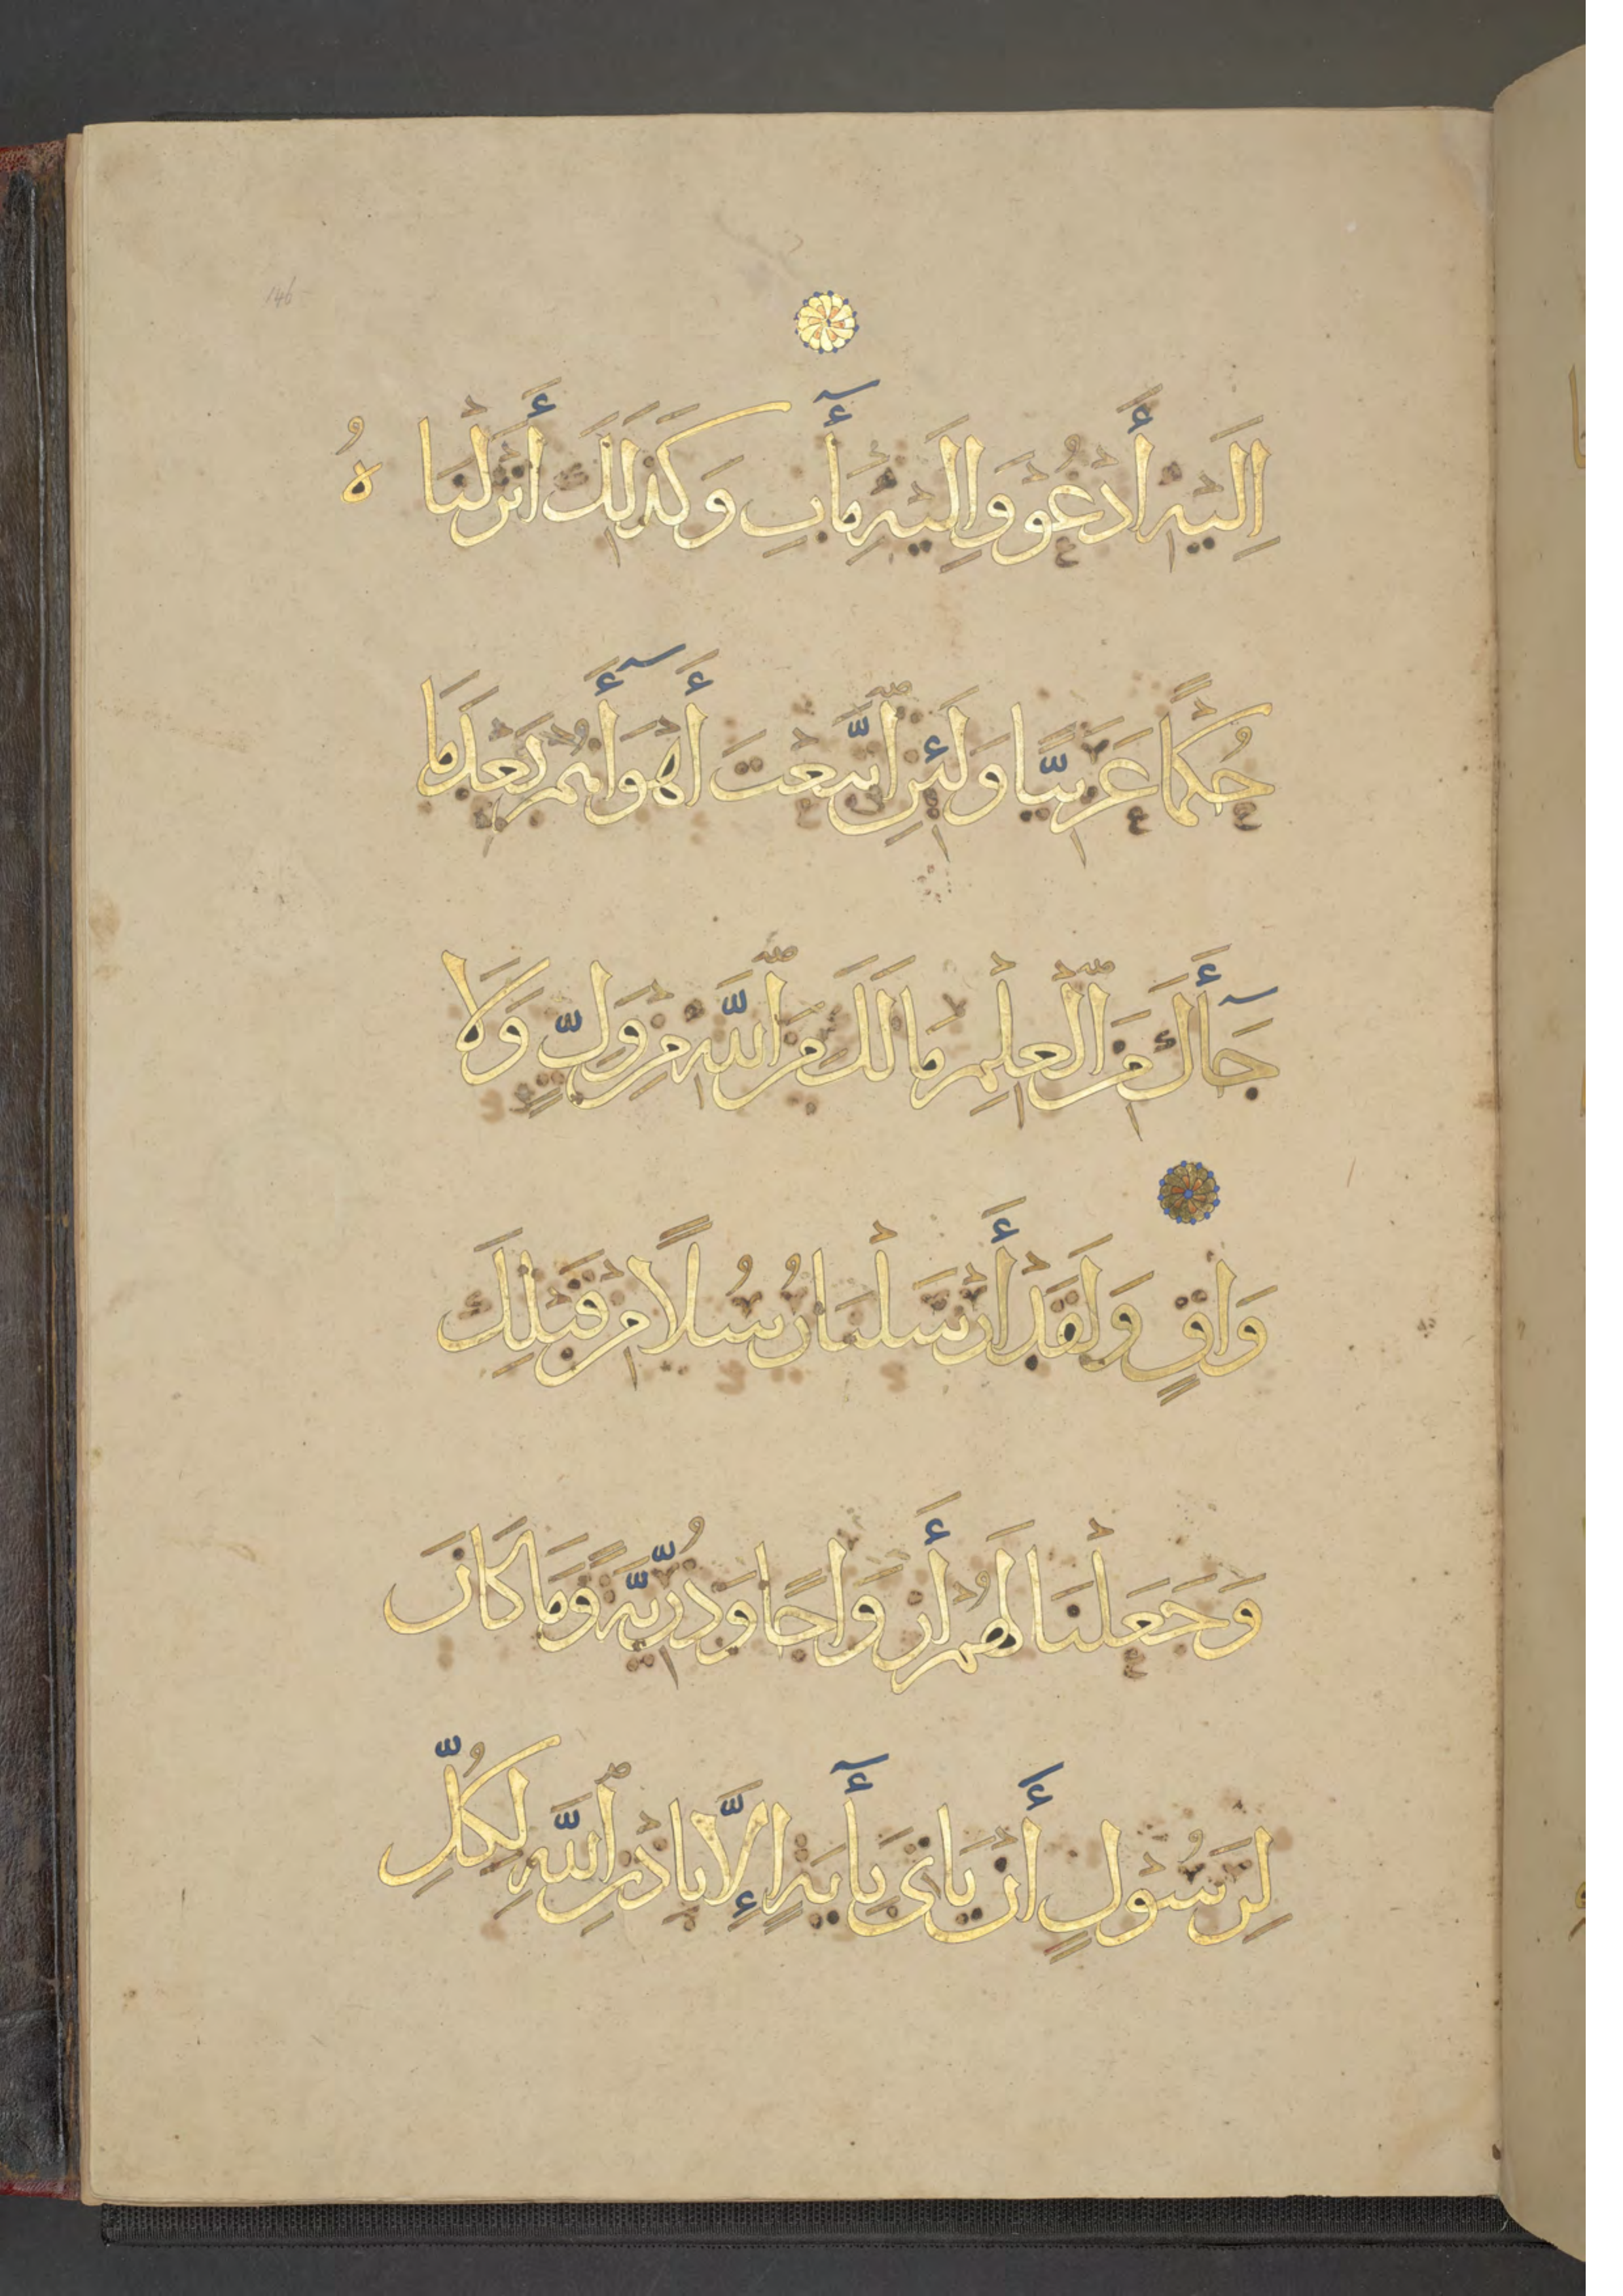 146
إِلَيْهِ أَدْعُوْ وَإِلَيْهِ مَآبِ وَكَذَٰلِكَ أَنْزَلْنَا هُ
حُكْمًا عَرَبِيًّا وَلَئِنِ اتَّبَعْتَ أَهْوَآءَهُمْ بَعْدَ مَا
جَآءَكَ مِنَ الْعِلْمِ مَا لَكَ مِنَ اللَّهِ مِنْ وَلِيٍّ وَلَا
وَاقٍ وَلَقَدْ أَرْسَلْنَا رُسُلًا مِنْ قَبْلِكَ
وَجَعَلْنَا لَهُمْ أَزْوَاجًا وَذُرِّيَّةً وَمَا كَانَ
لِرَسُوْلٍ أَنْ يَأْتِىَ بِآيَةٍ إِلَّا بِإِذْنِ اللَّهِ لِكُلِّ